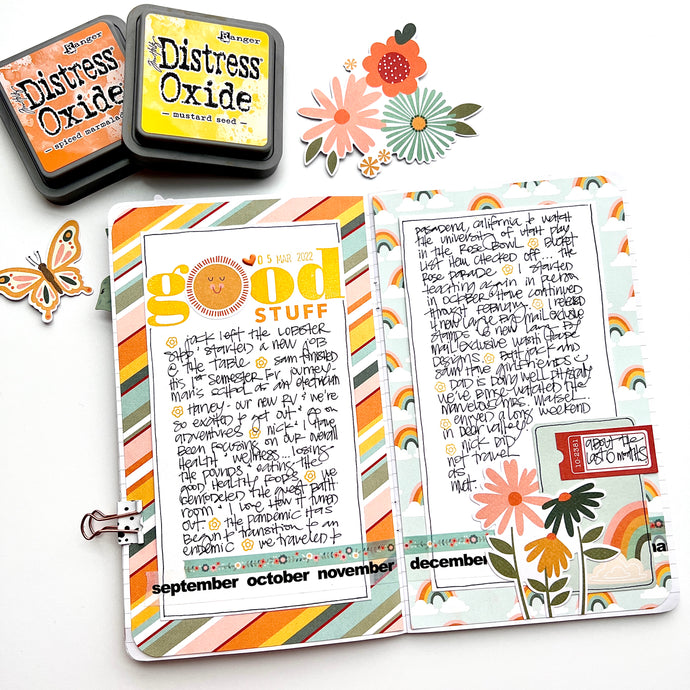 Ranger
Distress
Oxide
— spiced marmalad
Ranger
Distress
Oxide
— mustard seed —
05 MAR 2022
good
STUFF
Jack left the LOBSTER
Stop & started a new job
@ The Table Sam finished
his 1st semester for journey-
man's school as an electrician
Harvey - our new RV & we're
so excited to get out & go on
adventures Nick & I have
been focusing on our overall
Health & wellness... losing
the pounds & eating the
good healthy foods we
remodeled the guest bath
room & I love how it turned
out. The pandemic has
begun to transition to an
endemic we traveled to
september october november
Pasadena, California to watch
the University of Utah play
in the Rose Bowl Bucket
list item checked off... the
Rose Parade I started
teaching again in person
in October & have continued
through February. I released
new
stamps & new
mail exclusive washi tape
designs Both Jack and
Sam have girlfriends
Dad is doing well
we're binge-watched the
Marvelous Mrs. Maisel
enjoyed a long weekend
in Deer Valley
Nick did
not travel
as
much.
10-2381
about the
last 6 months
december